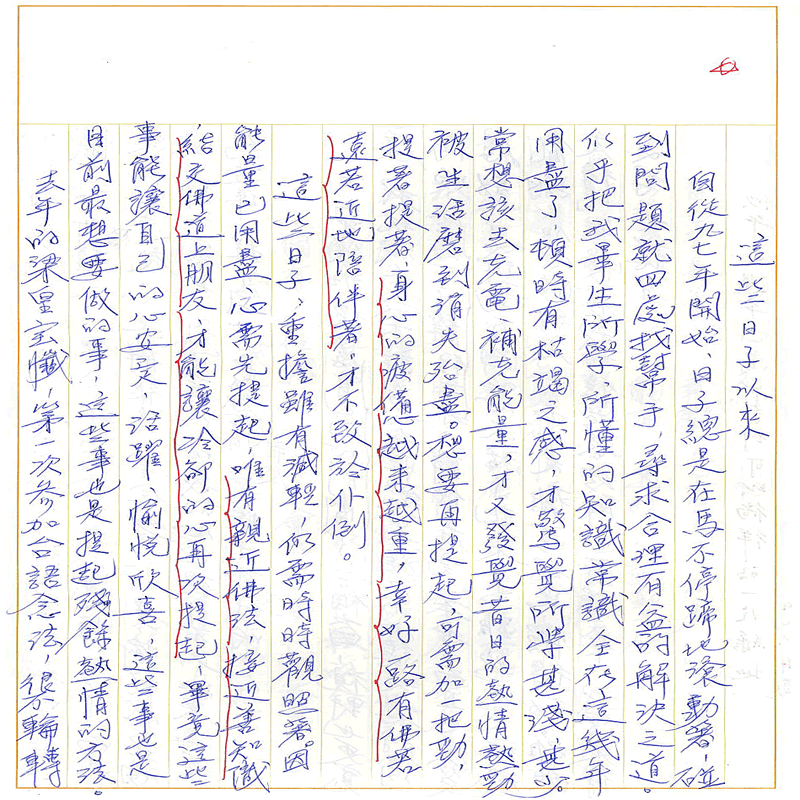 這些日子以來
自從九七年開始、日子總是在馬不停蹄地滾動著，碰
到問題就四處找幫手，尋求合理有益的解決之道。
似乎把我畢生所學、所懂的知識常識全在這幾年
用盡了，頓時有枯竭之感，才驚覺所學甚淺，甚少。
常想該去充電、補充能量，才又發覺昔日的熱情熱勁
被生活磨到消失殆盡。想要再提起，可需加一把勁，
提著提著，身心的疲憊越來越重，幸好一路有佛若
遠若近地陪伴著，才不致於仆倒。
這些日子，重擔雖有減輕，仍需時時觀照著。因
能量已用盡，心需先提起，唯有親近佛法，接近善知識
，結交佛道上朋友，才能讓冷卻的心再次提起，畢竟這些
事能讓自己的心安定、活躍、愉悅欣喜，這些事也是
目前最想要做的事，這些事也是提起殘餘熱情的方法。
去年的梁皇寶懺，第一次參加台語念法，很輪轉